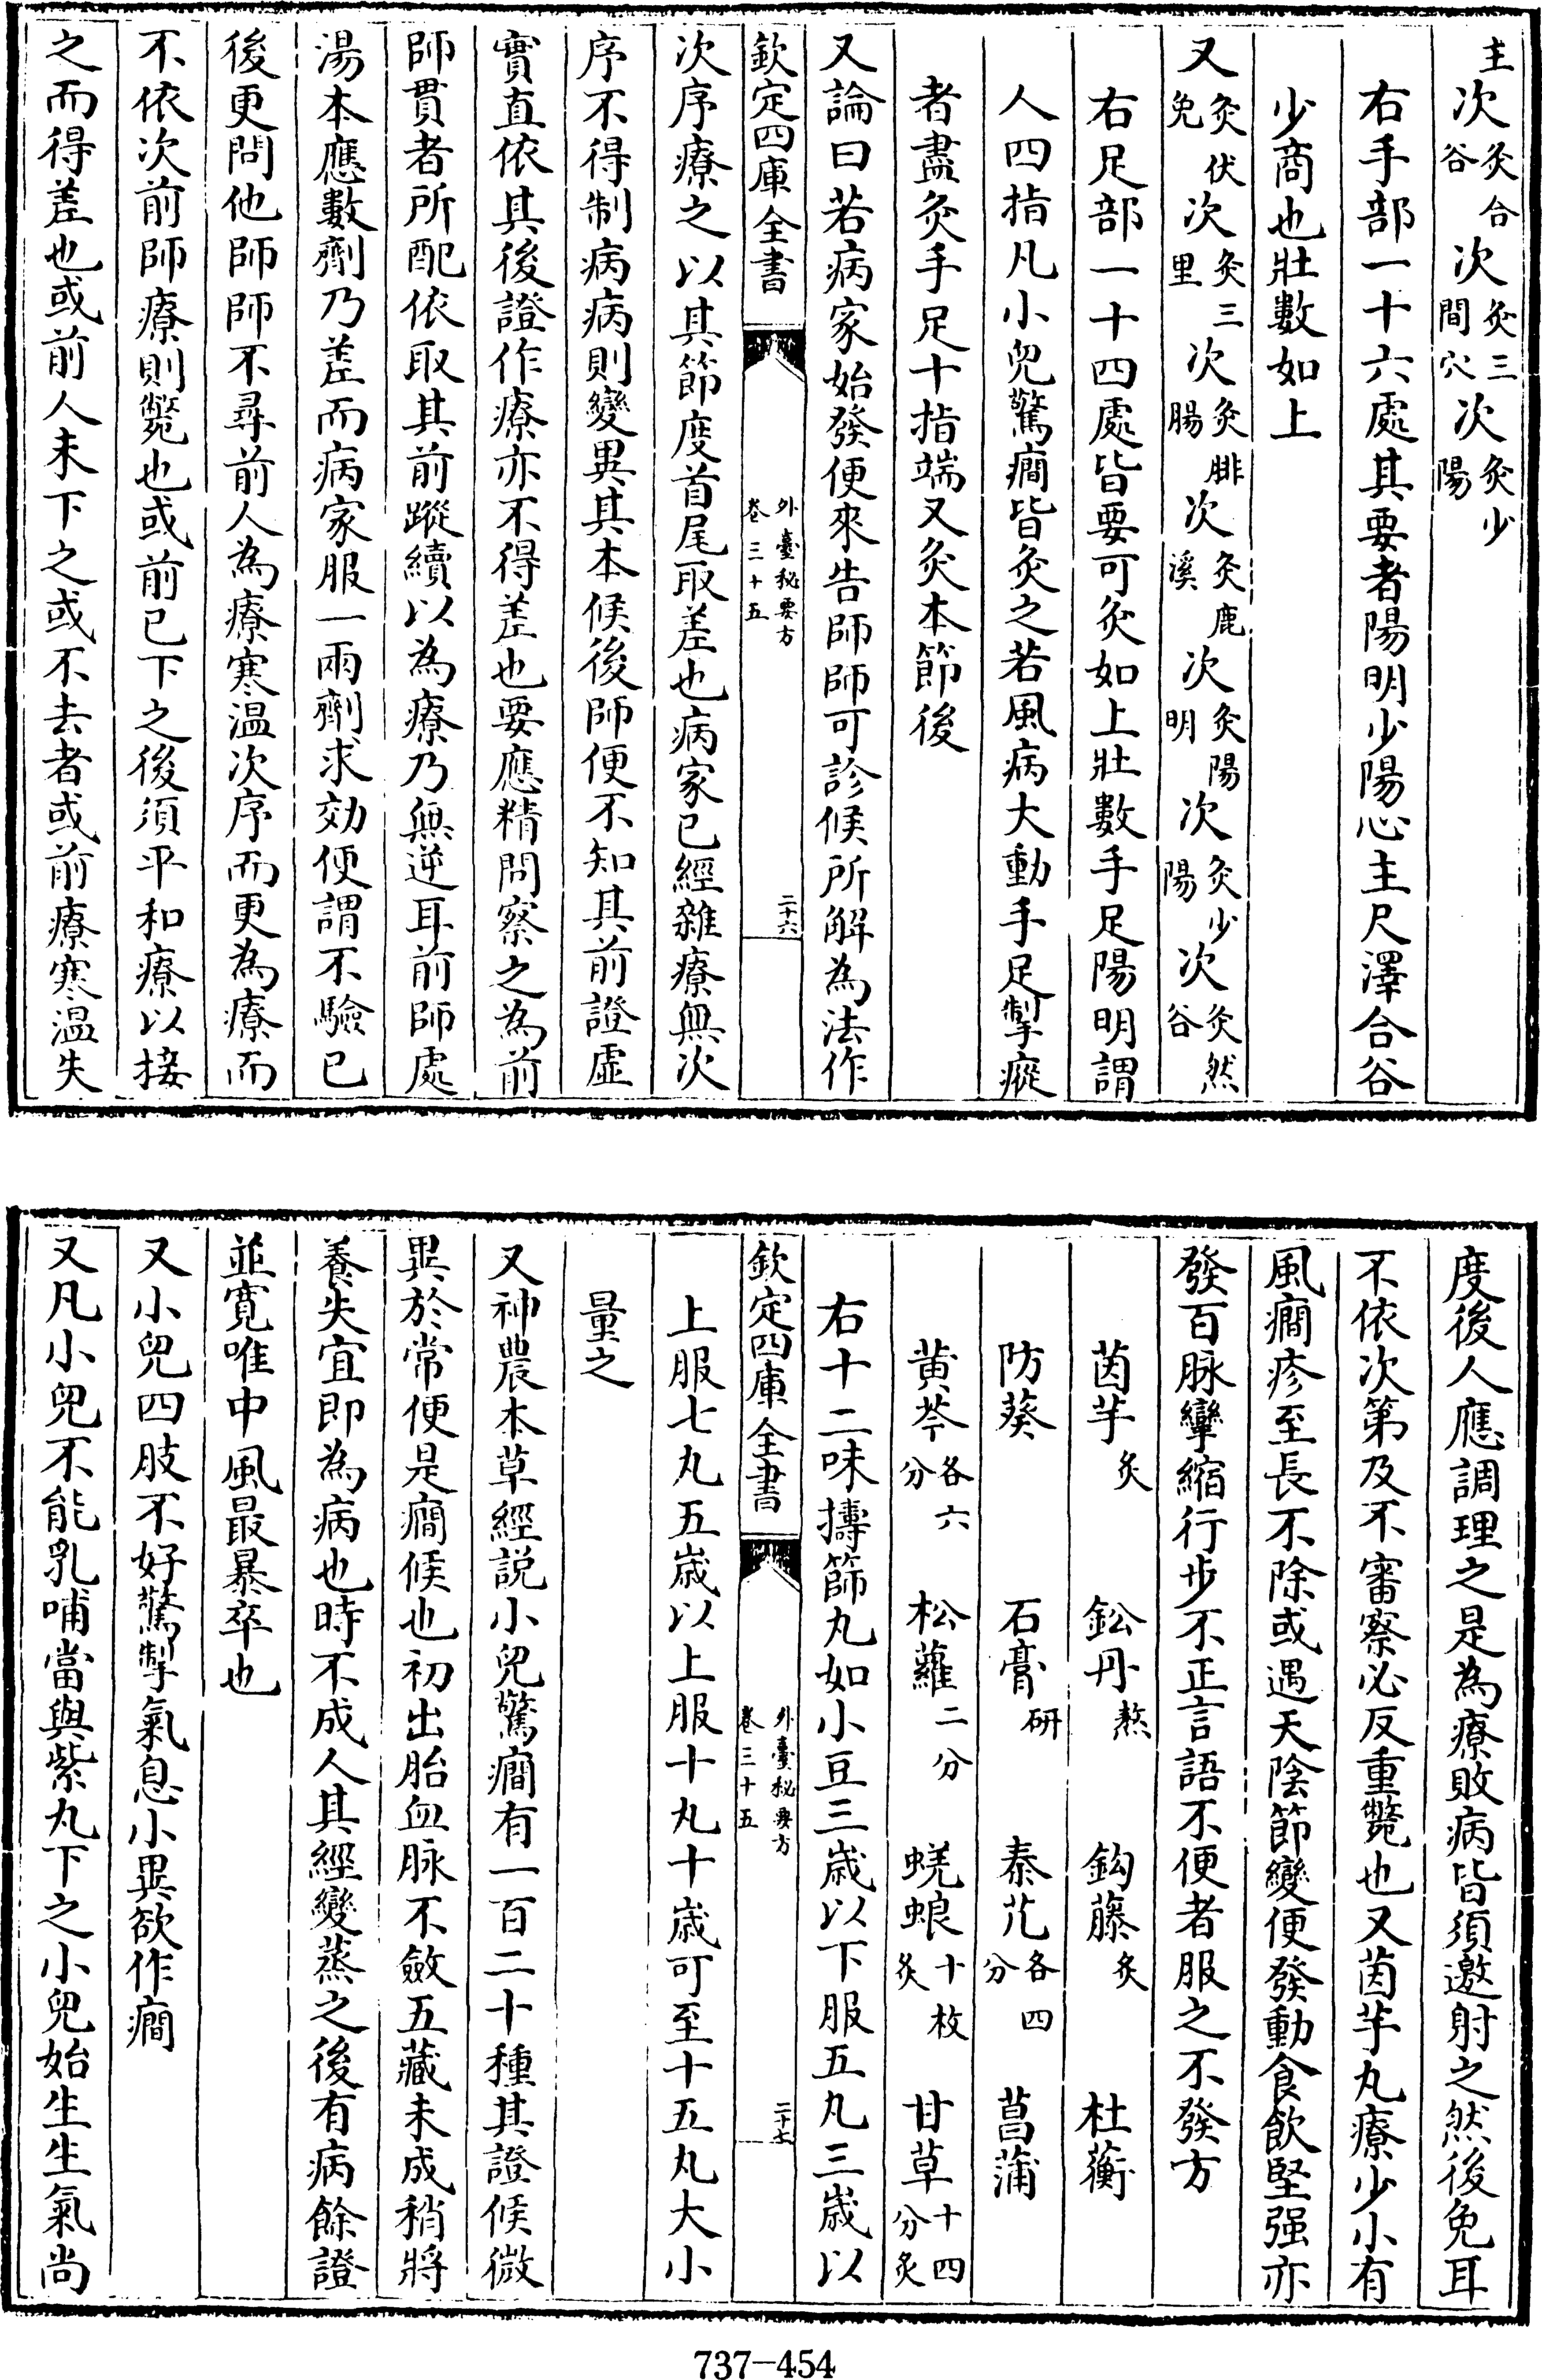 主次灸合谷次灸三間穴次灸少陽
右手部一十六處其要者陽明少陽心主尺澤合谷
少商也壯數如上
又灸伏兔次灸三里次灸腓腸次灸鹿溪次灸陽明次灸少陽次灸然谷
右足部一十四處皆要可灸如上壯數手足陽明謂
人四指凡小兒驚癇皆灸之若風病大動手足掣瘲
者盡灸手足十指端又灸本節後
又論曰若病家始發便來告師師可診候所解為法作
欽定四庫全書
外臺秘要方
卷三十五
二十六
次序療之以其節度首尾取差也病家已經雜療無次
序不得制病病則變異其本候後師便不知其前證虛
實直依其後證作療亦不得差也要應精問察之為前
師貫者所配依取其前蹤續以為療乃無逆耳前師處
湯本應數劑乃差而病家服一兩劑求効便謂不驗已
後更問他師師不尋前人為療寒温次序而更為療而
不依次前師療則斃也或前已下之後須平和療以接
之而得差也或前人未下之或不去者或前療寒温失
度後人應調理之是為療敗病皆須邀射之然後免耳
不依次第及不審察必反重斃也又茵芋丸療少小有
風癇疹至長不除或遇天陰節變便發動食飲堅强亦
發百脉攣縮行步不正言語不便者服之不發方
茵芋炙 鈆丹熬 鈎藤炙 杜蘅
防葵 石膏研 秦艽各四分 菖蒲
黄芩各六分 松蘿二分 蜣蜋十枚炙 甘草十四分炙
右十二味擣篩丸如小豆三歳以下服五丸三歳以
欽定四庫全書
外臺秘要方
卷三十五
二十七
上服七丸五歳以上服十丸十歳可至十五丸大小
量之
又神農本草經説小兒驚癇有一百二十種其證候微
異於常便是癇候也初出胎血脉不斂五藏未成稍將
養失宜即為病也時不成人其經變蒸之後有病餘證
並寛唯中風最暴卒也
又小兒四肢不好驚掣氣息小異欲作癇
又凡小兒不能乳哺當與紫丸下之小兒始生生氣尚
737-454